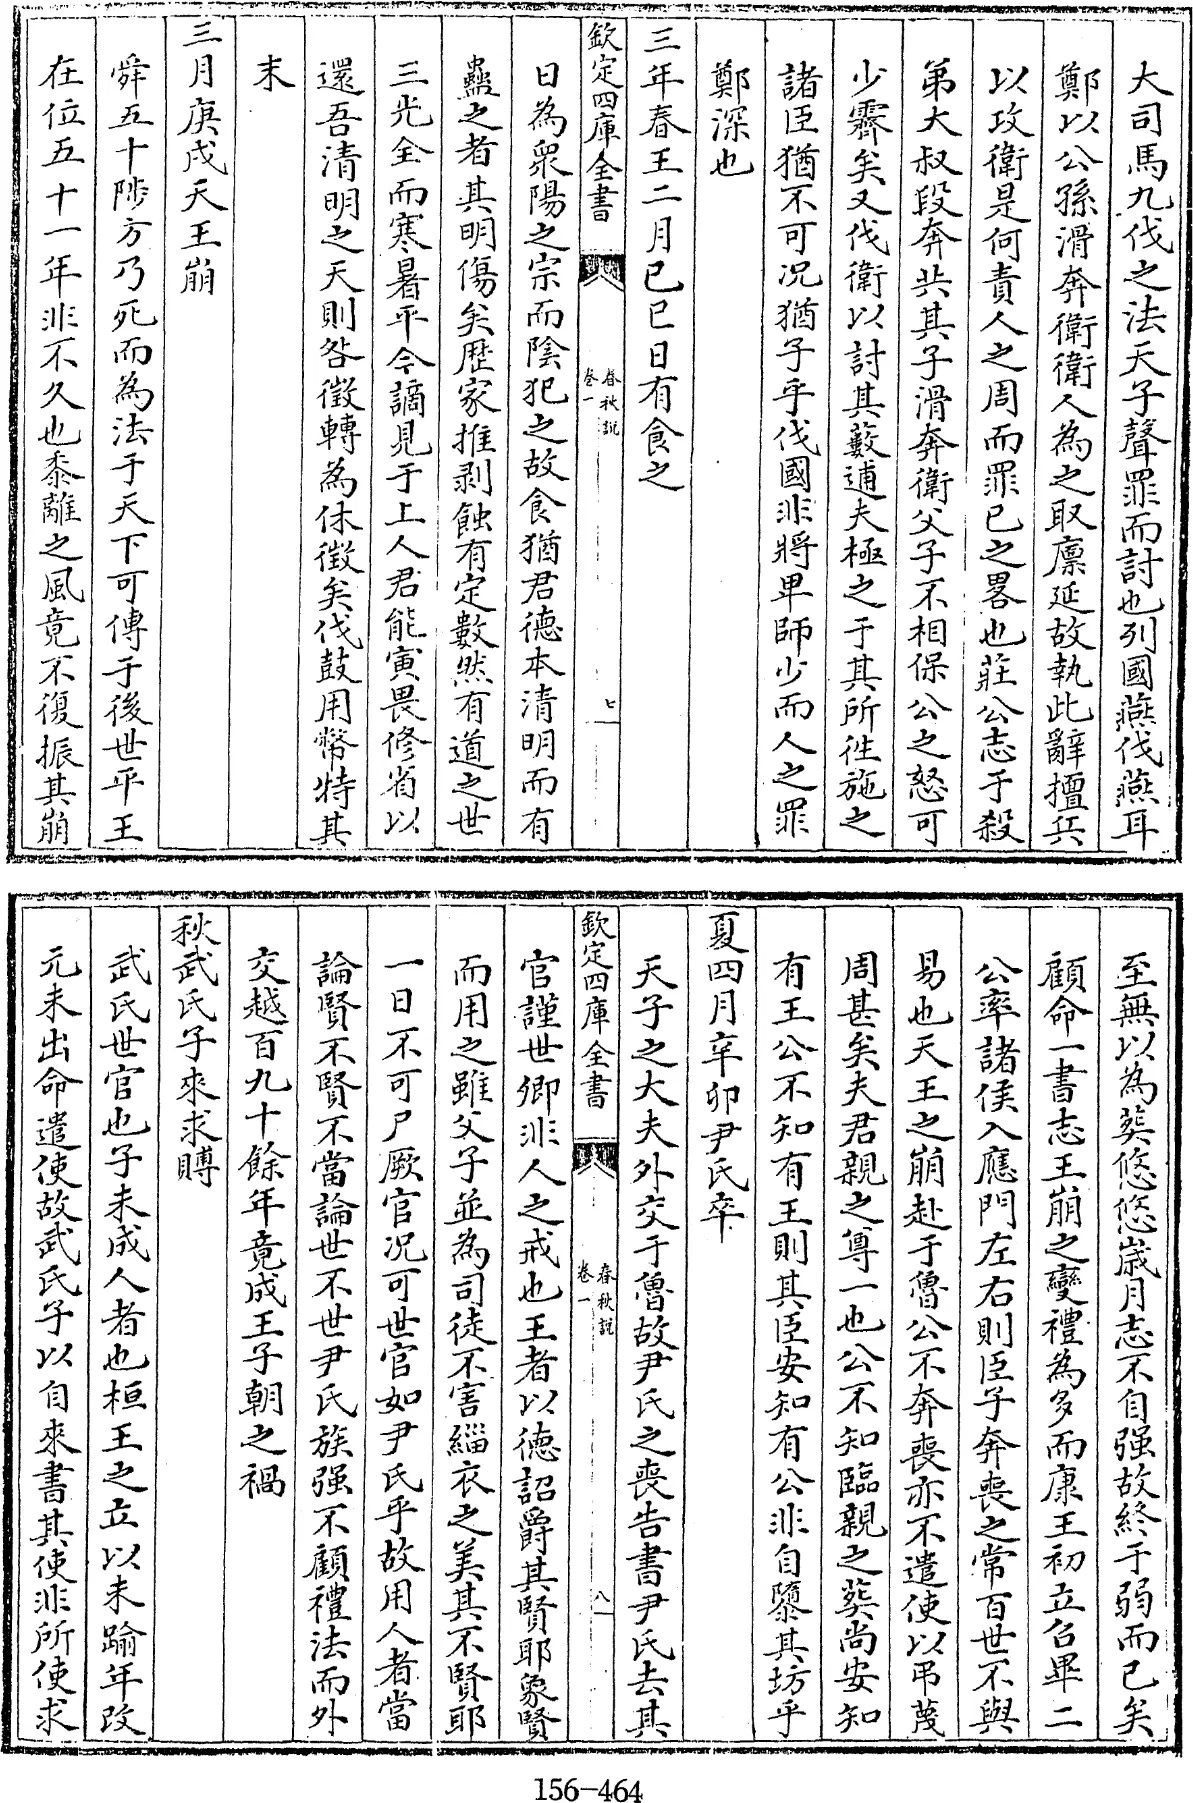 大司馬九伐之法天子聲罪而討也列國燕伐燕耳
鄭以公孫滑奔衛衛人為之取廪延故執此辭擅兵
以攻衛是何責人之周而罪已之畧也莊公志于殺
弟大叔段奔共其子滑奔衛父子不相保公之怒可
少霽矣又伐衛以討其藪逋夫極之于其所徃施之
諸臣猶不可况猶子乎伐國非將卑師少而人之罪
鄭深也
三年春王二月已巳日有食之
欽定四庫全書
春秋說
卷一
七
日為衆陽之宗而陰犯之故食猶君德本清明而有
蠱之者其明傷矣歴家推剥蝕有定數然有道之世
三光全而寒暑平今謫見于上人君能寅畏修省以
還吾清明之天則咎徴轉為休徴矣伐鼓用幣特其
末
三月庚戌天王崩
舜五十陟方乃死而為法于天下可傳于後世平王
在位五十一年非不久也黍離之風竟不復振其崩
至無以為葬悠悠嵗月志不自强故終于弱而已矣
顧命一書志王崩之變禮為多而康王初立召畢二
公率諸侯入應門左右則臣子奔喪之常百世不與
易也天王之崩赴于魯公不奔喪亦不遣使以弔蔑
周甚矣夫君親之尊一也公不知臨親之葬尚安知
有王公不知有王則其臣安知有公非自隳其坊乎
夏四月辛卯尹氏卒
天子之大夫外交于魯故尹氏之喪告書尹氏去其
欽定四庫全書
春秋說
卷一
八
官謹世卿非人之戒也王者以德詔爵其賢耶象賢
而用之雖父子並為司徒不害緇衣之美其不賢耶
一日不可尸厥官况可世官如尹氏乎故用人者當
論賢不賢不當論世不世尹氏族强不顧禮法而外
交越百九十餘年竟成王子朝之禍
秋武氏子來求賻
武氏世官也子未成人者也桓王之立以未踰年改
元未出命遣使故武氏子以自來書其使非所使求
156-464